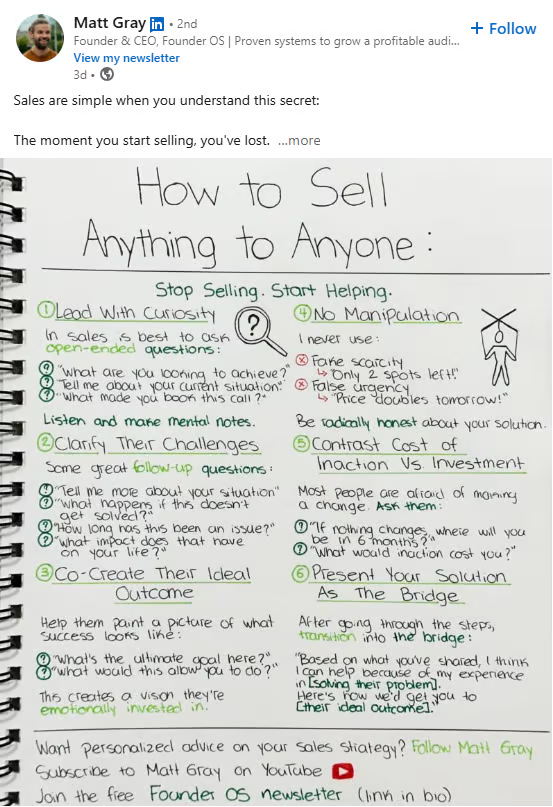 Matt Gray in • 2nd
Founder & CEO, Founder OS | Proven systems to grow a profitable audi...
View my newsletter
3d •
+ Follow
Sales are simple when you understand this secret:
The moment you start selling, you've lost. ...more
How to Sell
Anything to Anyone:
Stop Selling. Start Helping.
1 Lead With Curiosity
In sales is best to ask
open-ended questions:
? "What are you looking to achieve?"
? "Tell me about your current situation."
? "What made you book this call?"
Listen and make mental notes.
2 Clarify Their Challenges
Some great follow-up questions:
? "Tell me more about your situation"
? "What happens if this doesn't
get solved?"
? "How long has this been an issue?"
? "What impact does that have
on your life?"
3 Co-Create Their Ideal
Outcome
Help them paint a picture of what
success looks like:
? "What's the ultimate goal here?"
? "What would this allow you to do?"
This creates a vision they're
emotionally invested in.
?
4 No Manipulation
I never use:
x Fake scarcity
↳ "Only 2 spots left!"
x False urgency
↳ "Price doubles tomorrow!"
Be radically honest about your solution.
5 Contrast Cost of
Inaction Vs. Investment
Most people are afraid of making
a change. Ask them:
? "If nothing changes, where will you
be in 6 months?"
? "What would inaction cost you?"
6 Present Your Solution
As The Bridge
After going through the steps,
transition into the bridge:
"Based on what you've shared, I think
I can help because of my experience
in [solving their problem].
Here's how we'd get you to
[their ideal outcome]."
Want personalized advice on your sales strategy? Follow Matt Gray
Subscribe to Matt Gray on YouTube
Join the free Founder OS newsletter (link in bio)